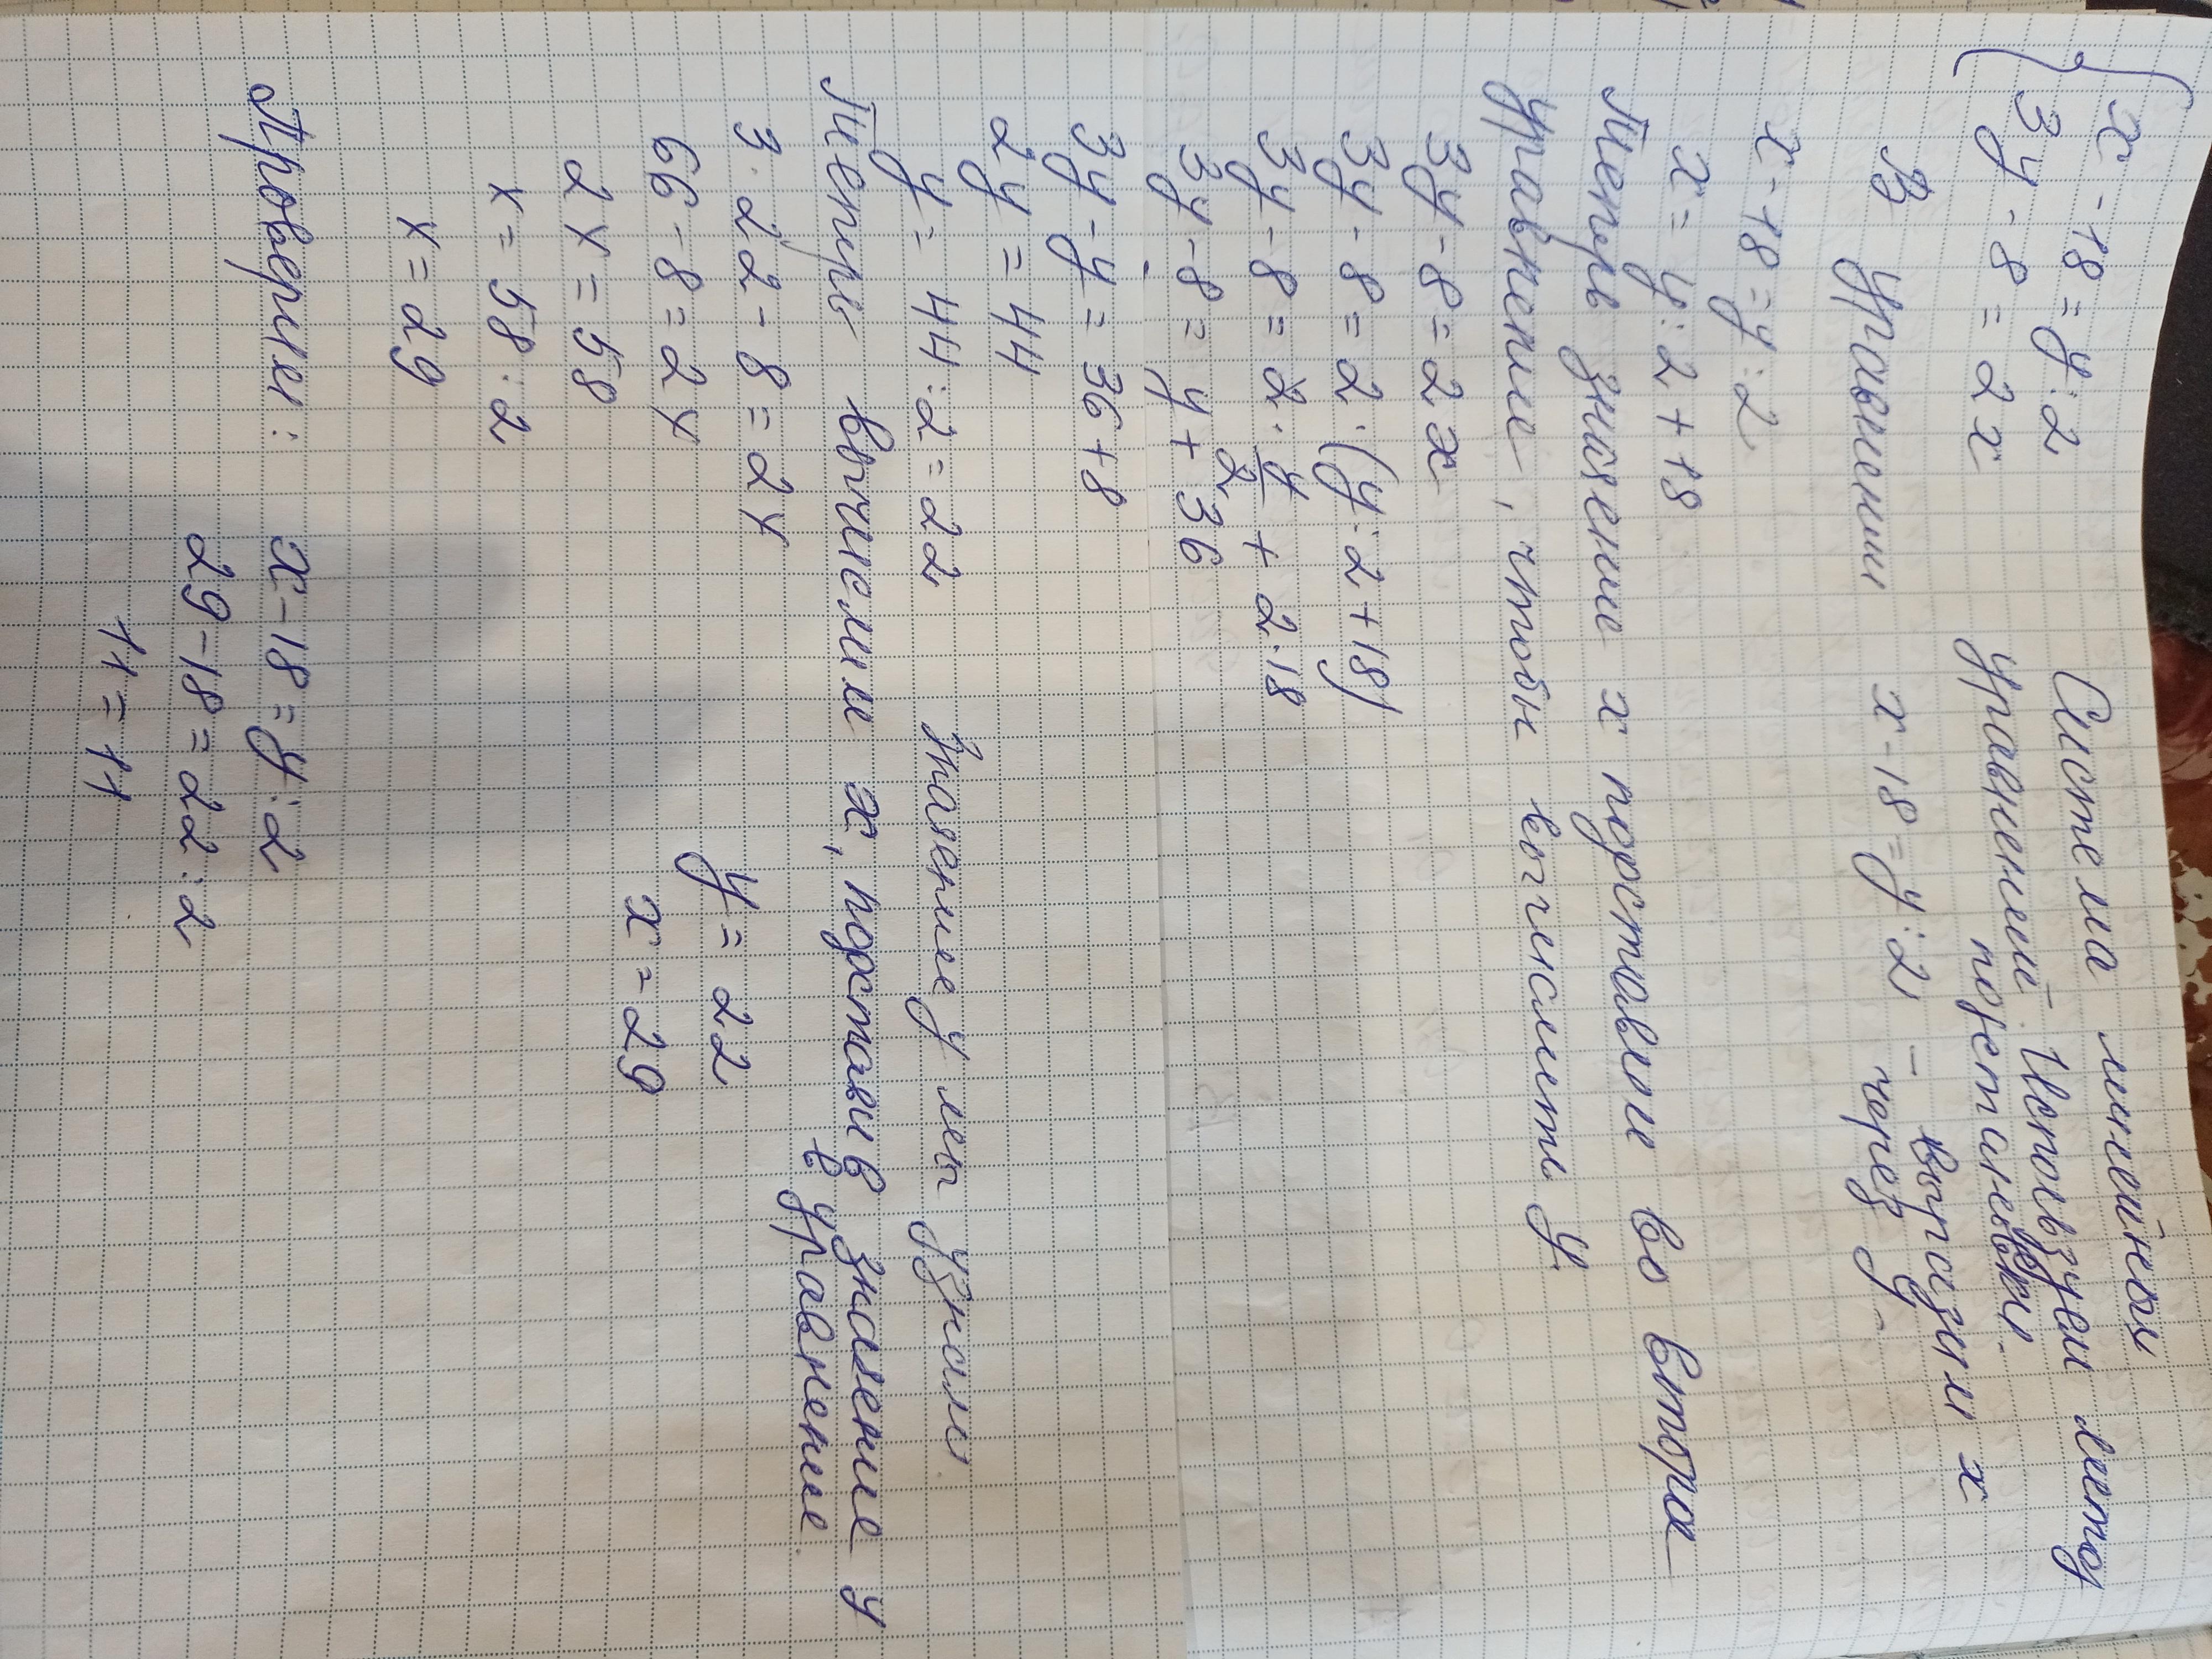 x - 18 = y : 2
3y - 8 = 2x
Система линейных
уравнений. Используем метод
подстановки.
В уравнении x - 18 = y : 2 - выразим x
через y.
x - 18 = y : 2
x = y : 2 + 18
Теперь значение x подставим во второе
уравнение, чтобы вычислить y
3y - 8 = 2x
3y - 8 = 2 · (y : 2 + 18)
3y - 8 = 2 · y/2 + 2 · 18
3y - 8 = y + 36
3y - y = 36 + 8
2y = 44
y = 44 : 2 = 22 Значение y мы узнали
Теперь вычислим x, подставив значение y
в уравнение.
3 · 22 - 8 = 2x
66 - 8 = 2x
2x = 58
x = 58 : 2
x = 29
y = 22
x = 29
Проверим: x - 18 = y : 2
29 - 18 = 22 : 2
11 = 11